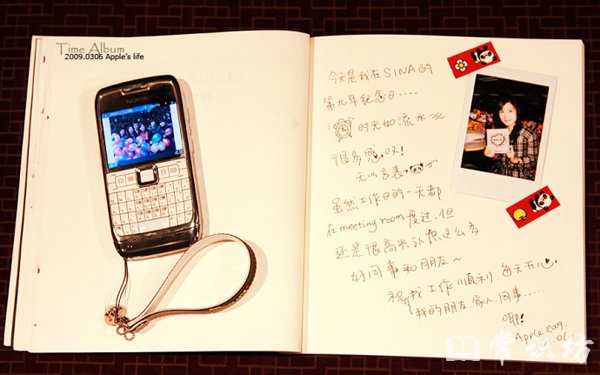 Time Album
2009.0306 Apple's life
NOKIA
今天是我在SINA的
第九年纪念日....
时光如流水
很多感叹!
无以言表
虽然工作日的一天都
在meeting room度过,但
还是很高兴认识这么多
好同事和朋友~
祝我工作顺利,每天开心,
我的朋友、家人、同事.....
耶!
Apple 2009.
03.06
常识坊